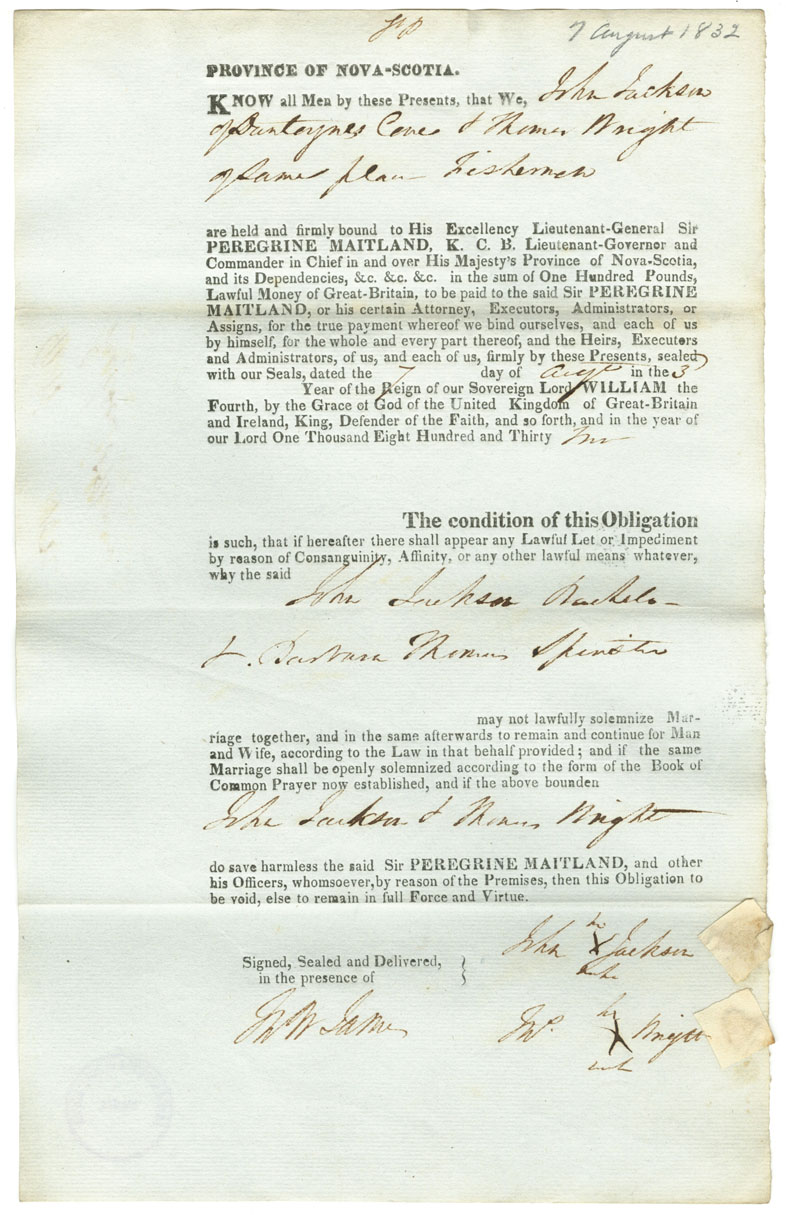 7 August 1832
PROVINCE OF NOVA-SCOTIA.
KNOW all Men by these Presents, that We, John Jackson
of Cove & Thomas Wright
of same place Fishermen
are held and firmly bound to His Excellency Lieutenant-General Sir
PEREGRINE MAITLAND, K. C. B. Lieutenant-Governor and
Commander in Chief in and over His Majesty's Province of Nova-Scotia,
and its Dependencies, &c. &c. &c. in the sum of One Hundred Pounds,
Lawful Money of Great-Britain, to be paid to the said Sir PEREGRINE
MAITLAND, or his certain Attorney, Executors, Administrators, or
Assigns, for the true payment whereof we bind ourselves, and each of us
by himself, for the whole and every part thereof, and the Heirs, Executors
and Administrators, of us, and each of us, firmly by these Presents, sealed
with our Seals, dated the 7 day of Augt in the 3d
Year of the Reign of our Sovereign Lord WILLIAM the
Fourth, by the Grace of God of the United Kingdom of Great-Britain
and Ireland, King, Defender of the Faith, and so forth, and in the year of
our Lord One Thousand Eight Hundred and Thirty Two
The condition of this Obligation
is such, that if hereafter there shall appear any Lawful Let or Impediment
by reason of Consanguinity, Affinity, or any other lawful means whatever,
why the said
John Jackson Bachelor
& Barbara Thomas Spinster
may not lawfully solemnize Mar-
riage together, and in the same afterwards to remain and continue for Man
and Wife, according to the Law in that behalf provided; and if the same
Marriage shall be openly solemnized according to the form of the Book of
Common Prayer now established, and if the above bounden
John Jackson & Thomas Wright
do save harmless the said Sir PEREGRINE MAITLAND, and other
his Officers, whomsoever, by reason of the Premises, then this Obligation to
be void, else to remain in full Force and Virtue.
his
John X Jackson
mark
Signed, Sealed and Delivered,
in the presence of
his
W James Thos. X Wright
mark